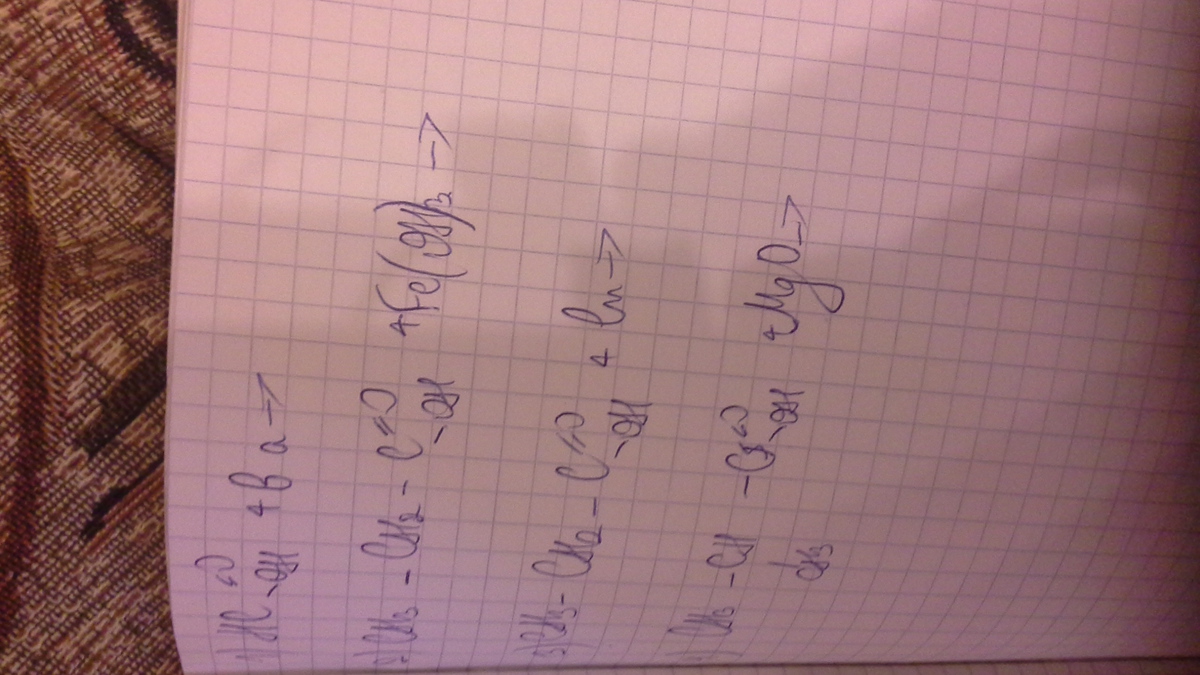 1) HC =O -OH + Ba →
2) CH3 - CH2 - C =O -OH + Fe(OH)2 →
3) CH3 - CH2 - C =O -OH + →
CH3 - CH - C =O -OH + MgO →
CH3